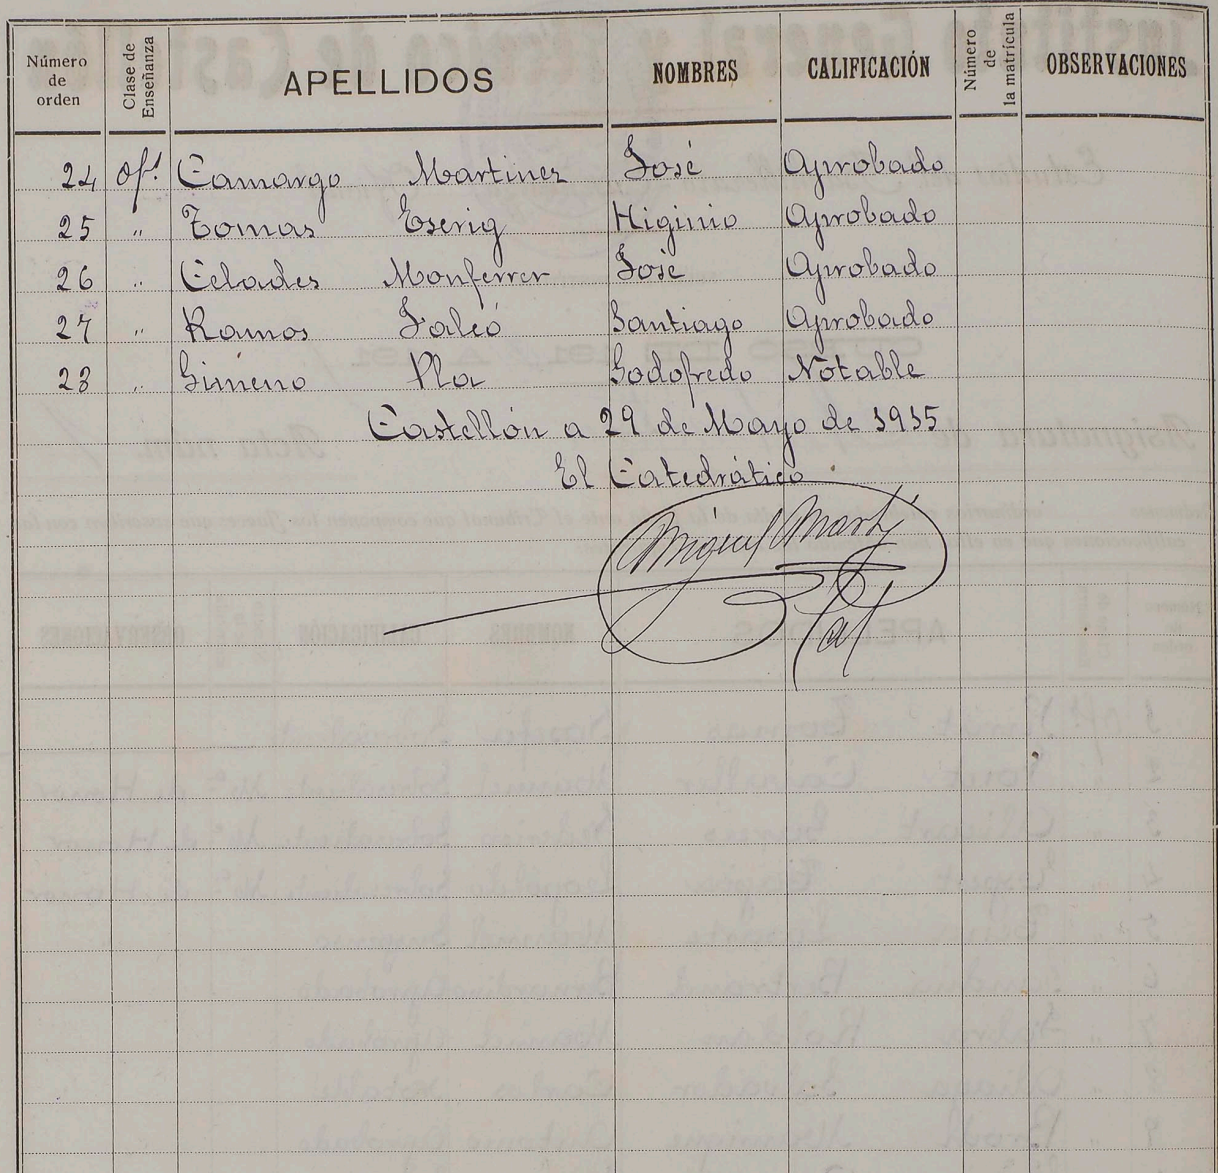 Número de orden Clase de Enseñanza APELLIDOS NOMBRES CALIFICACIÓN Número de la matrícula OBSERVACIONES
24 Of.¹ Camargo Martinez José Aprobado
25 " Tomas Escrig Higinio Aprobado
26 " Celades Monferrer José Aprobado
27 " Ramos Falcó Santiago Aprobado
28 " Gimeno Pla Godofredo Notable
Castellón a 29 de Mayo de 1915
El Catedrático
Miguel Martí